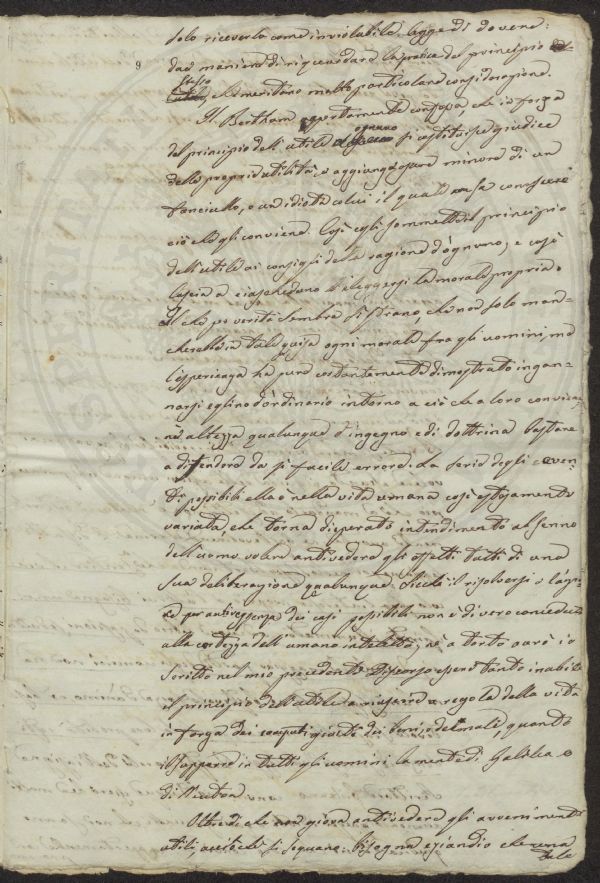 solo riceverla come inviolabile legge di dovere:
due maniere di riguardare la pratica del principio
9
stesso, che meritano molto particolare considerazione.
Il Bentham apertamente confessa, che in forza
del principio dell'utile ognuno si costituisce giudice
della propria utilità, e aggiunge essere minore di un
fanciullo, o un idiota colui il quale non sa conoscere
ciò che gli conviene. Così egli sommette il principio
dell'utile ai consigli della ragione d'ognuno, e così
lascia a ciascheduno l'eleggersi la morale propria.
Il che per verità sembra sì strano, che non solo man-
cherebbe in tale guisa ogni morale fra gli uomini, ma
l'esperienza ha pure costantemente dimostrato ingan-
narsi eglino d'ordinario intorno a ciò che a loro convien,
nè altezza qualunque d'ingegno e di dottrina bastare
a difendere da sì facile errore. La serie degli even-
ti possibili ella è nella vita umana così estesamente
variata, che torna disperato intendimento al senno
dell'uomo volere antivedere gli effetti tutti di una
sua deliberazione qualunque. Sicchè il risolversi a
per antiveggenza dei casi possibili non è di vero conceduto
alla certezza dell'umano intelletto, nè a torto avrò io
scritto nel mio precedente Discorso essere tanto inabile
il principio dell'utile a riuscire a regola della vita
in forza dei computi giusti dei beni, e dei mali, quanto
il supporre in tutti gli uomini la mente di Galileo o
di Newton.
Oltre di che non giova antivedere gli avvenimenti
utili, acciocchè si seguano: bisogna eziandio che una
tale